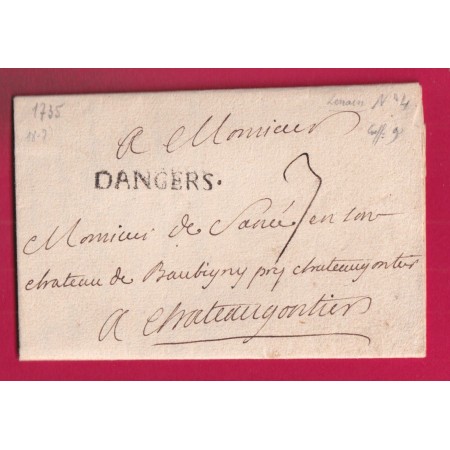 1735
Lenain N° 4
A Monsieur
DANGERS.
3
Monsieur de en son
chateau de Baubigny prez chateaugontier
A chateaugontier